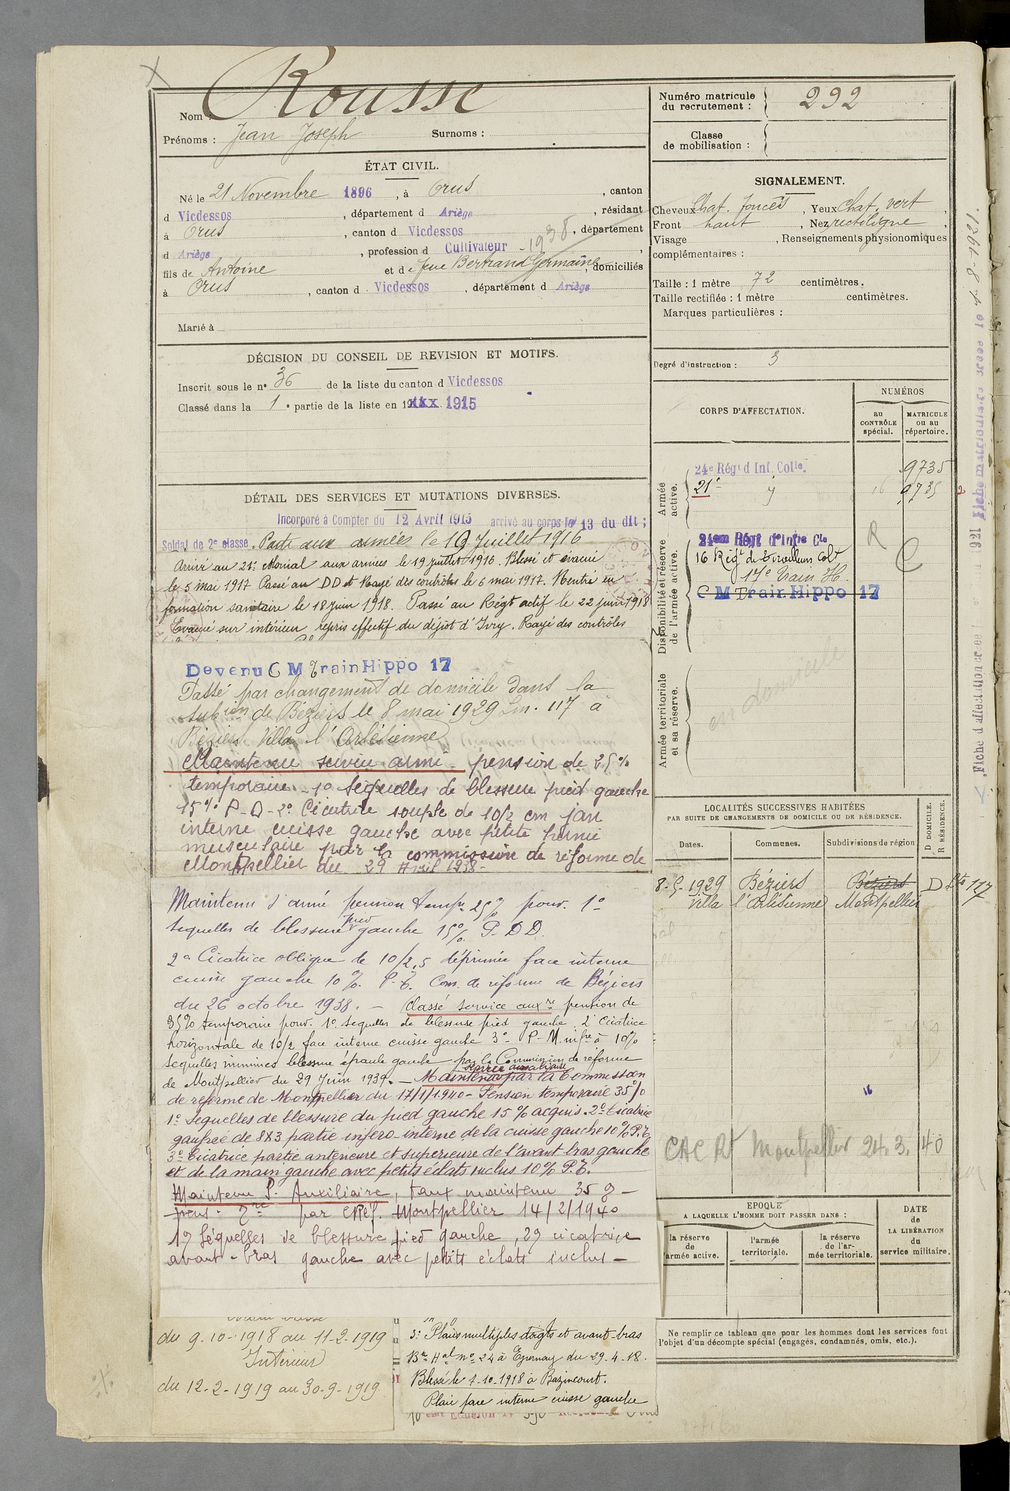 Nom : Rousse
Prénoms : Jean Joseph Surnoms :
ÉTAT CIVIL.
Né le 21 Novembre 1896, à Orus, canton
d Vicdessos, département d Ariège, résidant
à Orus, canton d Vicdessos, département
d Ariège, profession d Cultivateur - 1938
fils de Antoine et d e feue Bertrand Germaine, domiciliés
à Orus, canton d Vicdessos, département d Ariège
Marié à
DÉCISION DU CONSEIL DE REVISION ET MOTIFS.
Inscrit sous le n° 36 de la liste du canton d Vicdessos
Classé dans la 1e partie de la liste en 1915
DÉTAIL DES SERVICES ET MUTATIONS DIVERSES.
Incorporé à Compter du 12 Avril 1915 arrivé au corps le 13 du dit ;
Soldat de 2e classe. Parti aux armées le 19 Juillet 1916
Arrivé au 21e colonial aux armées le 19 juillet 1916. Blessé et évacué
le 5 mai 1917 Passé au DD et Rayé des contrôles le 6 mai 1917. Rentré en
formation sanitaire le 18 juin 1918. Passé au Régt actif le 22 juin 1918
Evacué sur intérieur repris effectif du dépôt d'Ivry. Rayé des contrôles
Devenu C M Train Hippo 17
Passé par changement de domicile dans la
subon de Béziers le 8 mai 1929 Ln. 117 à
Béziers Villa l'Arlésienne
Maintenu service armé. pension de 25%
temporaire - 1° Sequelles de blessure pied gauche
15% P-D-2° Cicatrice souple de 10/2 cm face
interne cuisse gauche avec petite hernie
musculaire par la commission de réforme de
Montpellier du 29 Avril 1938-
Maintenu S. armé pension tempre 25% pour. 1°
sequelles de blessure pied gauche 15% P.D D.
2° Cicatrice oblique de 10/2,5 déprimée face interne
cuisse gauche 10%. P.T. Com. de réforme de Béziers
du 26 octobre 1938. - Classé service auxre pension de
35% temporaire pour. 1° Sequelles de blessure pied gauche, 2° Cicatrice
horizontale de 10/2 face interne cuisse gauche 3° P-M. infre à 10%
Sequelles minimes blessure épaule gauche - par la Commission de réforme
de Montpellier du 29 Juin 1939. - Maintenu service auxiliaire par la Commission
de réforme de Montpellier du 17/1/1940 - Pension temporaire 35%
1° Sequelles de blessure du pied gauche 15% acquis. 2° Cicatrice
gaufrée de 8x3 partie infero-interne de la cuisse gauche 10% P.T.
3° Cicatrice partie antérieure et supérieure de l'avant bras gauche
et de la main gauche avec petits éclats inclus 10% P.T.
Maintenu S. Auxiliaire, taux maintenu 35%
par CRéf. Montpellier 14/2/1940
1° Séquelles de blessure pied gauche, 2° cicatrice
avant-bras gauche avec petits éclats inclus -
du 9-10-1918 au 11-2-1919
Intérieur
du 12-2-1919 au 30-9-1919
3° Plaies multiples doigts et avant-bras
Bre Hal n° 24 à Epernay du 29.4.18.
Blessé le 1-10-1918 à Bazincourt.
Plaie face interne cuisse gauche
Numéro matricule du recrutement : 292
Classe de mobilisation :
SIGNALEMENT.
Cheveux Chat. foncés, Yeux Chat. vert,
Front haut, Nez rectiligne,
Visage, Renseignements physionomiques
complémentaires :
Taille : 1 mètre 72 centimètres.
Taille rectifiée : 1 mètre centimètres.
Marques particulières :
Degré d'instruction : 3
CORPS D'AFFECTATION.
NUMÉROS
au CONTRÔLE spécial.
MATRICULE ou au répertoire.
Armée active.
24e Régt d Inf. Colle. 9735
21e 16 9735 2
Disponibilité et réserve de l'armée active.
21em Régt d'Infie Cle
16 Régt de Tirailleurs Colx
17e Train H.
C M Train Hippo 17
R C
Armée territoriale et sa réserve.
LOCALITÉS SUCCESSIVES HABITÉES
PAR SUITE DE CHANGEMENTS DE DOMICILE OU DE RÉSIDENCE.
Dates. Communes. Subdivisions de région
D DOMICILE.
R RÉSIDENCE.
8-5-1929 Béziers Béziers D 117
Villa l'Arlésienne Montpellier
16
CAC Rt Montpellier 24.3.40
EPOQUE
A LAQUELLE L'HOMME DOIT PASSER DANS :
la réserve de l'armée active.
l'armée territoriale.
la réserve de l'armée territoriale.
DATE de LA LIBÉRATION du service militaire.
Ne remplir ce tableau que pour les hommes dont les services font
l'objet d'un décompte spécial (engagés, condamnés, omis, etc.).